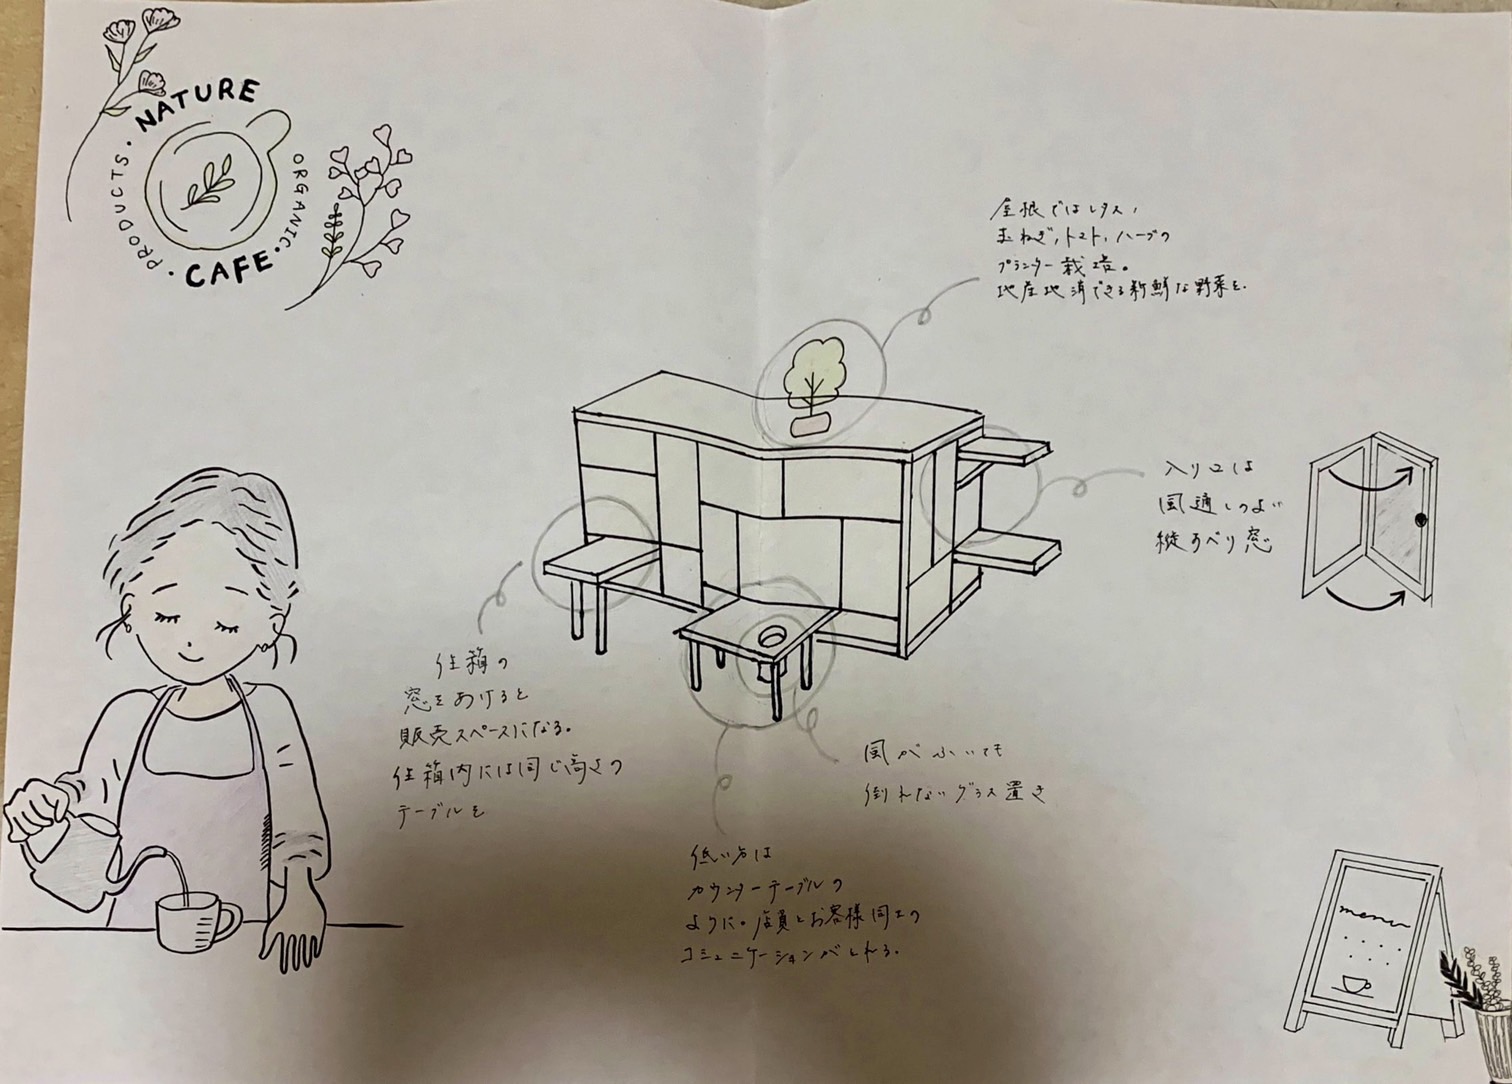 NATURE
CAFE
ORGANIC
PRODUCTS
屋根ではレタス、
玉ねぎ、トマト、ハーブの
プランター栽培。
地産地消できる新鮮な野菜を。
入り口は
風通しのよい
縦すべり窓
住箱の
窓をあけると
販売スペースになる。
住箱内には同じ高さの
テーブルを
風がふいても
倒れないグラス置き
低い方は
カウンターテーブルの
ように。店員とお客様同士の
コミュニケーションがとれる。
menu